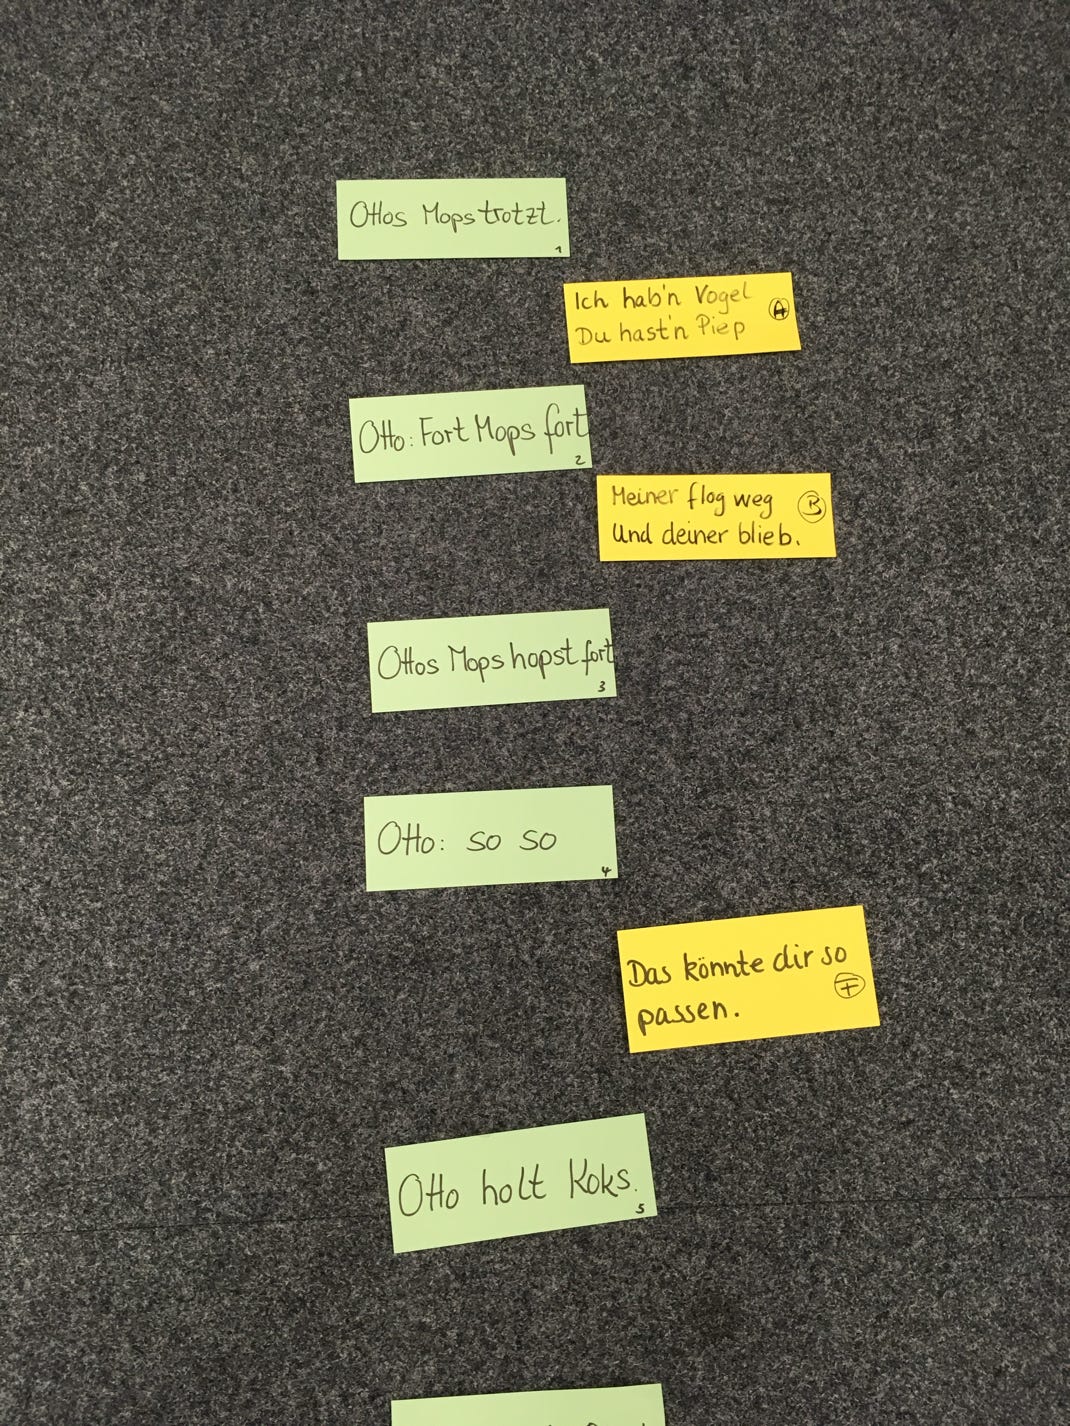 Ottos Mops trotzt.
1
Ich hab'n Vogel
Du hast'n Piep
A
Otto: Fort Mops fort
2
Meiner flog weg
Und deiner blieb.
B
Ottos Mops hopst fort
3
Otto: so so
4
Das könnte dir so
passen.
F
Otto holt Koks.
5